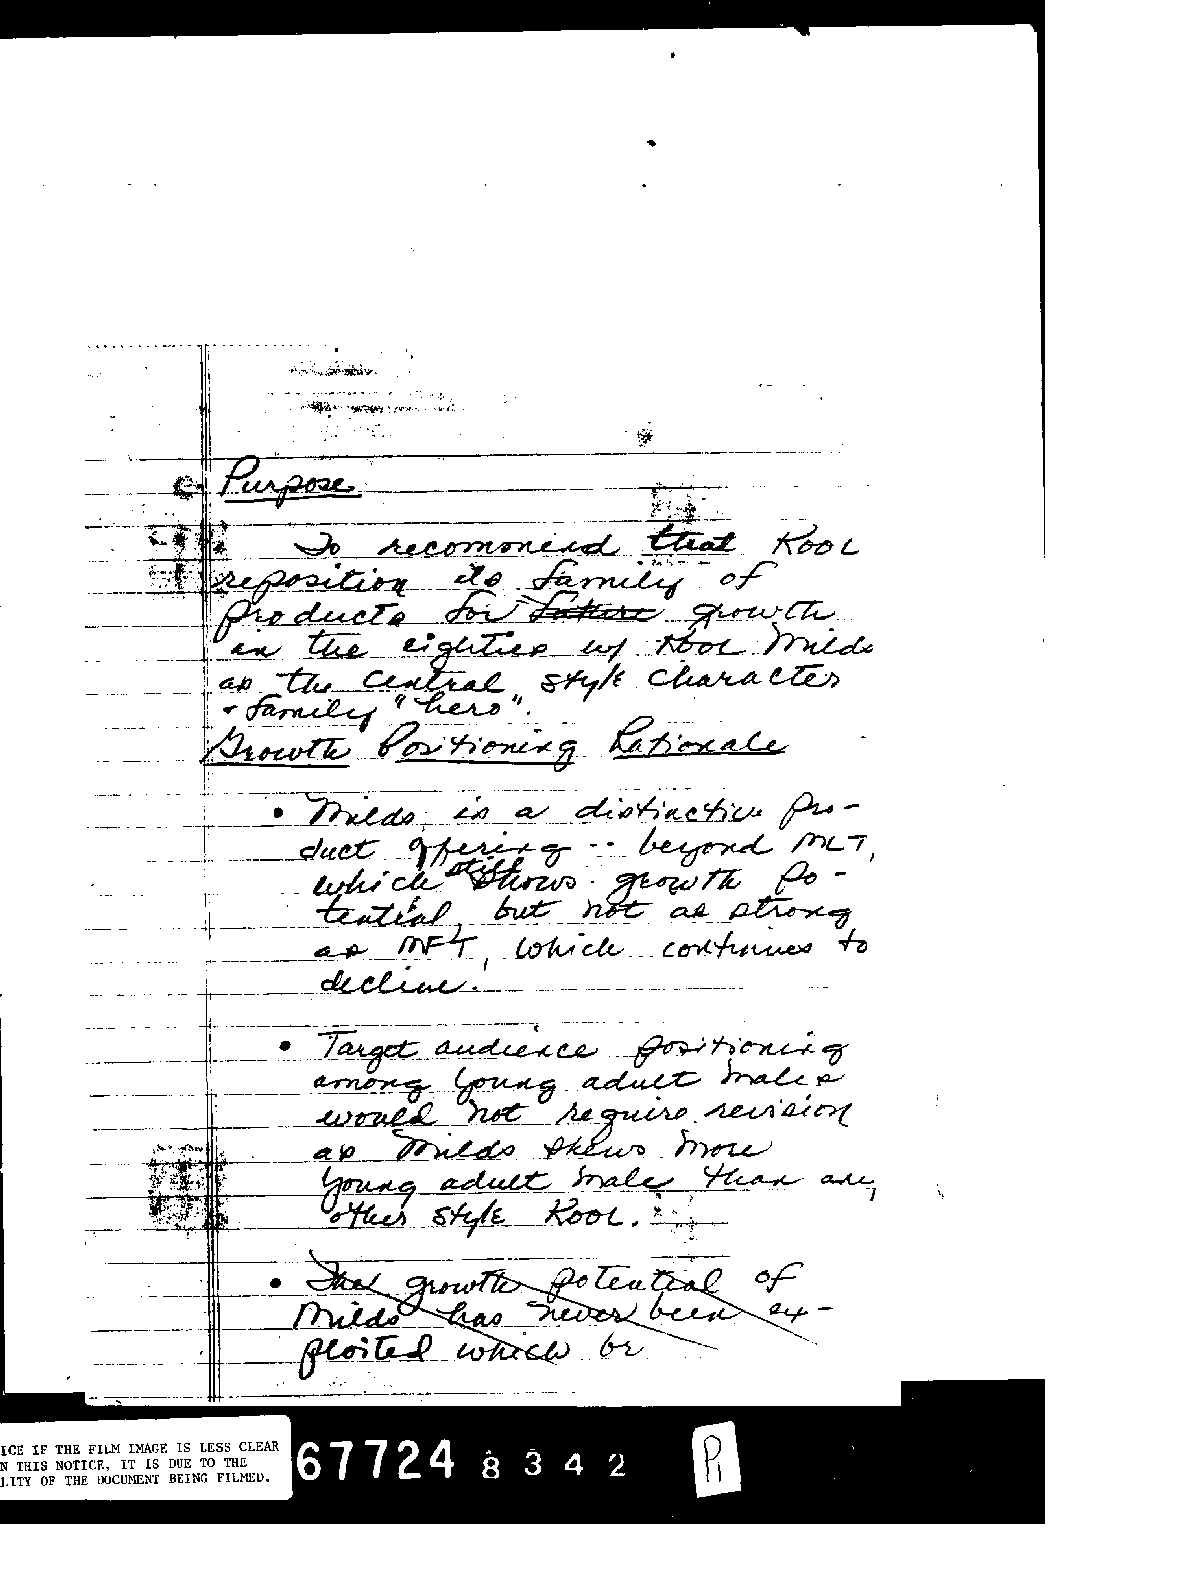 Purpose
To recommend that KOOL
reposition its family of
products for future growth
in the eighties w/ KOOL Milds
as the central style character
+ family "hero".
Growth Positioning Rationale
• Milds is a distinctive pro-
duct offering -- beyond MLT,
which still shows growth po-
tential, but not as strong
as MFT, which continues to
decline.
• Target audience positioning
among young adult males
would not require revision
as Milds skews more
young adult male than any
other style KOOL.
• The growth potential of
Milds has never been ex-
ploited which be
ICE IF THE FILM IMAGE IS LESS CLEAR
N THIS NOTICE, IT IS DUE TO THE
LITY OF THE DOCUMENT BEING FILMED.
67724 8342